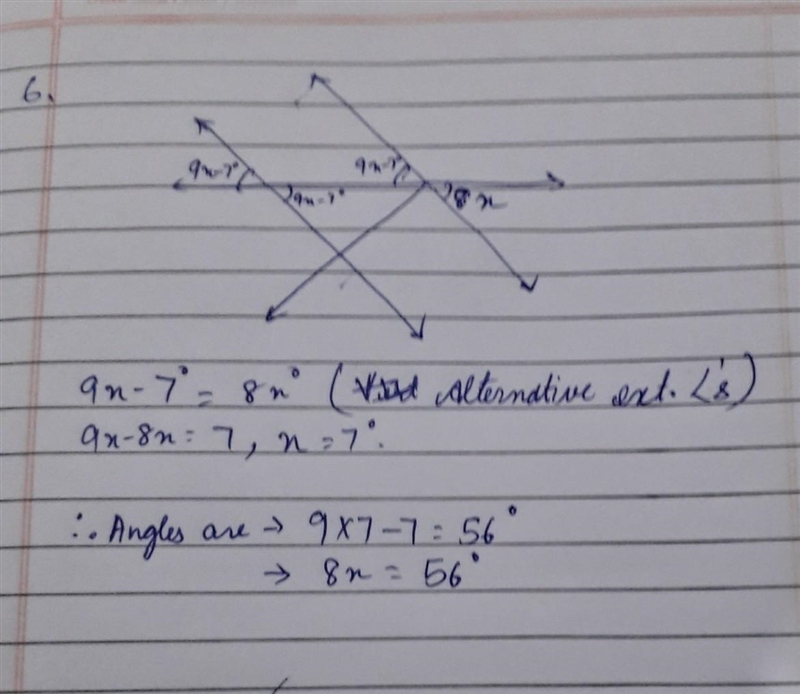 6.
9x-7° 9x-7°
9x-7° 8x
9x - 7° = 8x° ( Alternative ext. ∠'s)
9x-8x = 7, x = 7°.
∴ Angles are → 9×7-7 = 56°
→ 8x = 56°